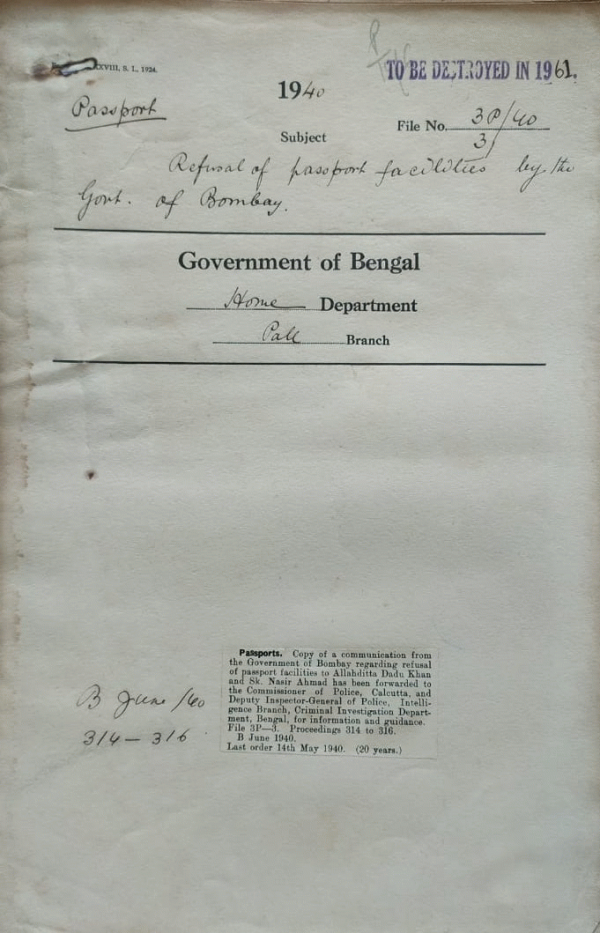 XXVIII, S. I., 1924.
TO BE DESTROYED IN 1961.
1940
Passport
File No. 3P/40
3
Subject
Refusal of passport facilities by the
Govt. of Bombay.
Government of Bengal
Home Department
Poll Branch
Passports. Copy of a communication from
the Government of Bombay regarding refusal
of passport facilities to Allahditta Dadu Khan
and Sk. Nasir Ahmad has been forwarded to
the Commissioner of Police, Calcutta, and
Deputy Inspector-General of Police, Intelli-
gence Branch, Criminal Investigation Depart-
ment, Bengal, for information and guidance.
File 3P—3. Proceedings 314 to 316.
B June 1940.
Last order 14th May 1940. (20 years.)
B June/40
314—316